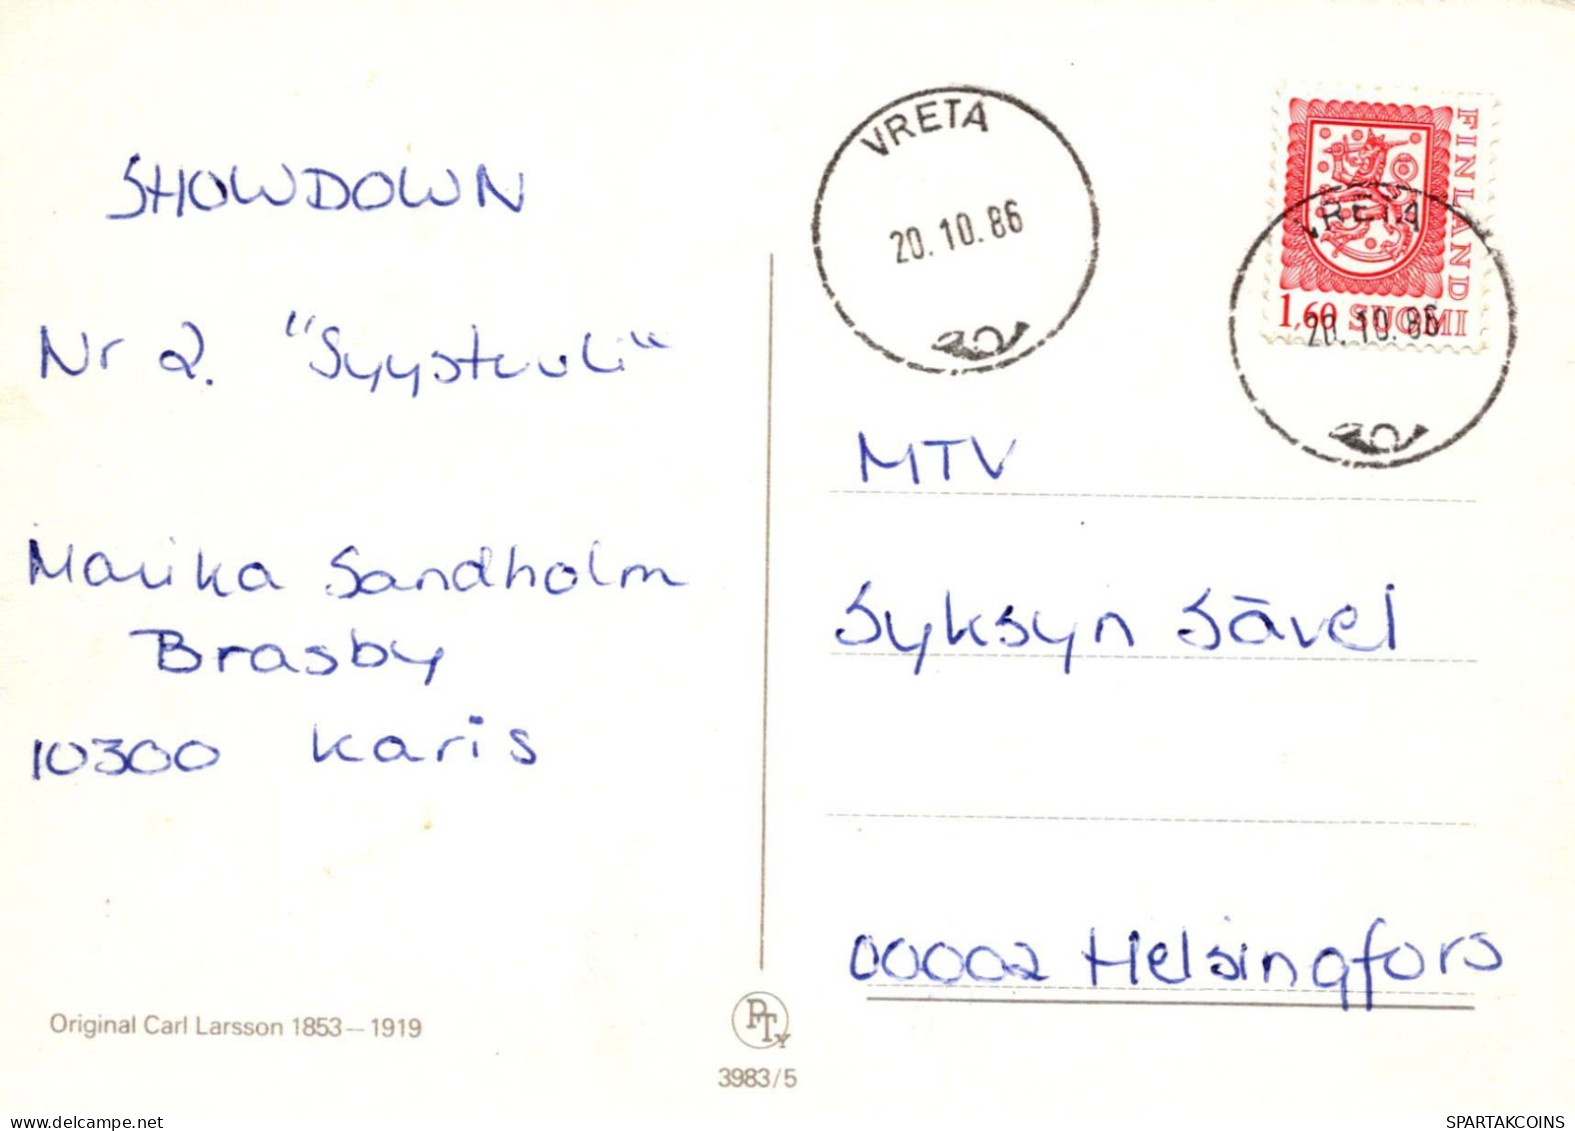 SHOWDOWN
Nr 2. "Syystuuli"
Marika Sandholm
Brasby
10300 Karis
Original Carl Larsson 1853–1919
PTy
3983/5
VRETA
20.10.86
FINLAND
1,60 SUOMI
VRETA
20.10.86
MTV
Syksyn Sävel
00002 Helsingfors
akpool.co.uk
SPARTAKCOINS